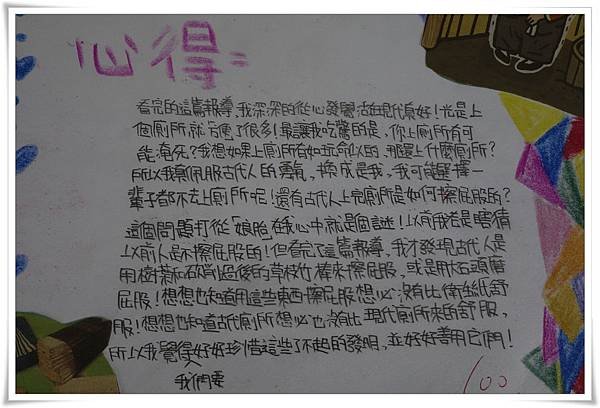 心得:
看完的這篇報導,我深深的從心發覺活在現代真好!光是上
個廁所就方便了很多!最讓我吃驚的是,你上廁所有可
能淹死?我想如果上廁所有如玩命似的,那還上什麼廁所?
所以我蠻佩服古代人的勇氣,換成是我,我可能選擇一
輩子都不去上廁所呢!還有古代人上完廁所是如何擦屁股的?
這個問題打從「娘胎」在我心中就是個謎!以前我老是瞎猜
以前人是不擦屁股的!但看完了這篇報導,我才發現古代人是
用樹葉和磨過後的草枝竹棒來擦屁股,或是用石頭磨
屁股!想想也知道用這些東西擦屁股想必沒有比衛生紙舒
服!想想也知道古代廁所想必也沒有比現代廁所來的舒服,
所以我覺得我們要好好珍惜這些了不起的發明,並好好善用它們!
100